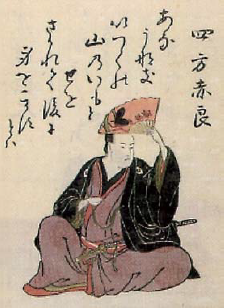 四方赤良
あな
うなき
いつくの
山のいもと
せを
さかれて後に
身をこかす
とは